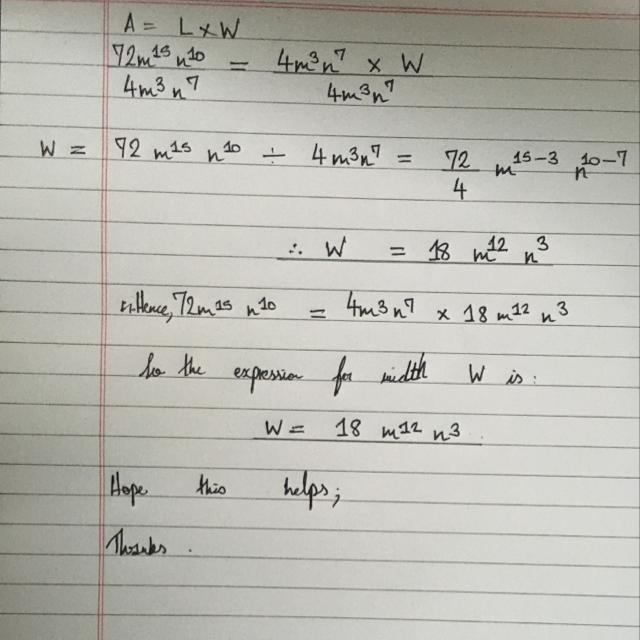 A = L x W
72m¹⁵ n¹⁰ = 4m³n⁷ x W
4m³n⁷ 4m³n⁷
W = 72 m¹⁵ n¹⁰ ÷ 4m³n⁷ = 72/4 m¹⁵⁻³ n¹⁰⁻⁷
∴ W = 18 m¹² n³
Hence, 72m¹⁵ n¹⁰ = 4m³n⁷ x 18 m¹² n³
So the expression for width W is:
W = 18 m¹² n³
Hope this helps;
Thanks.